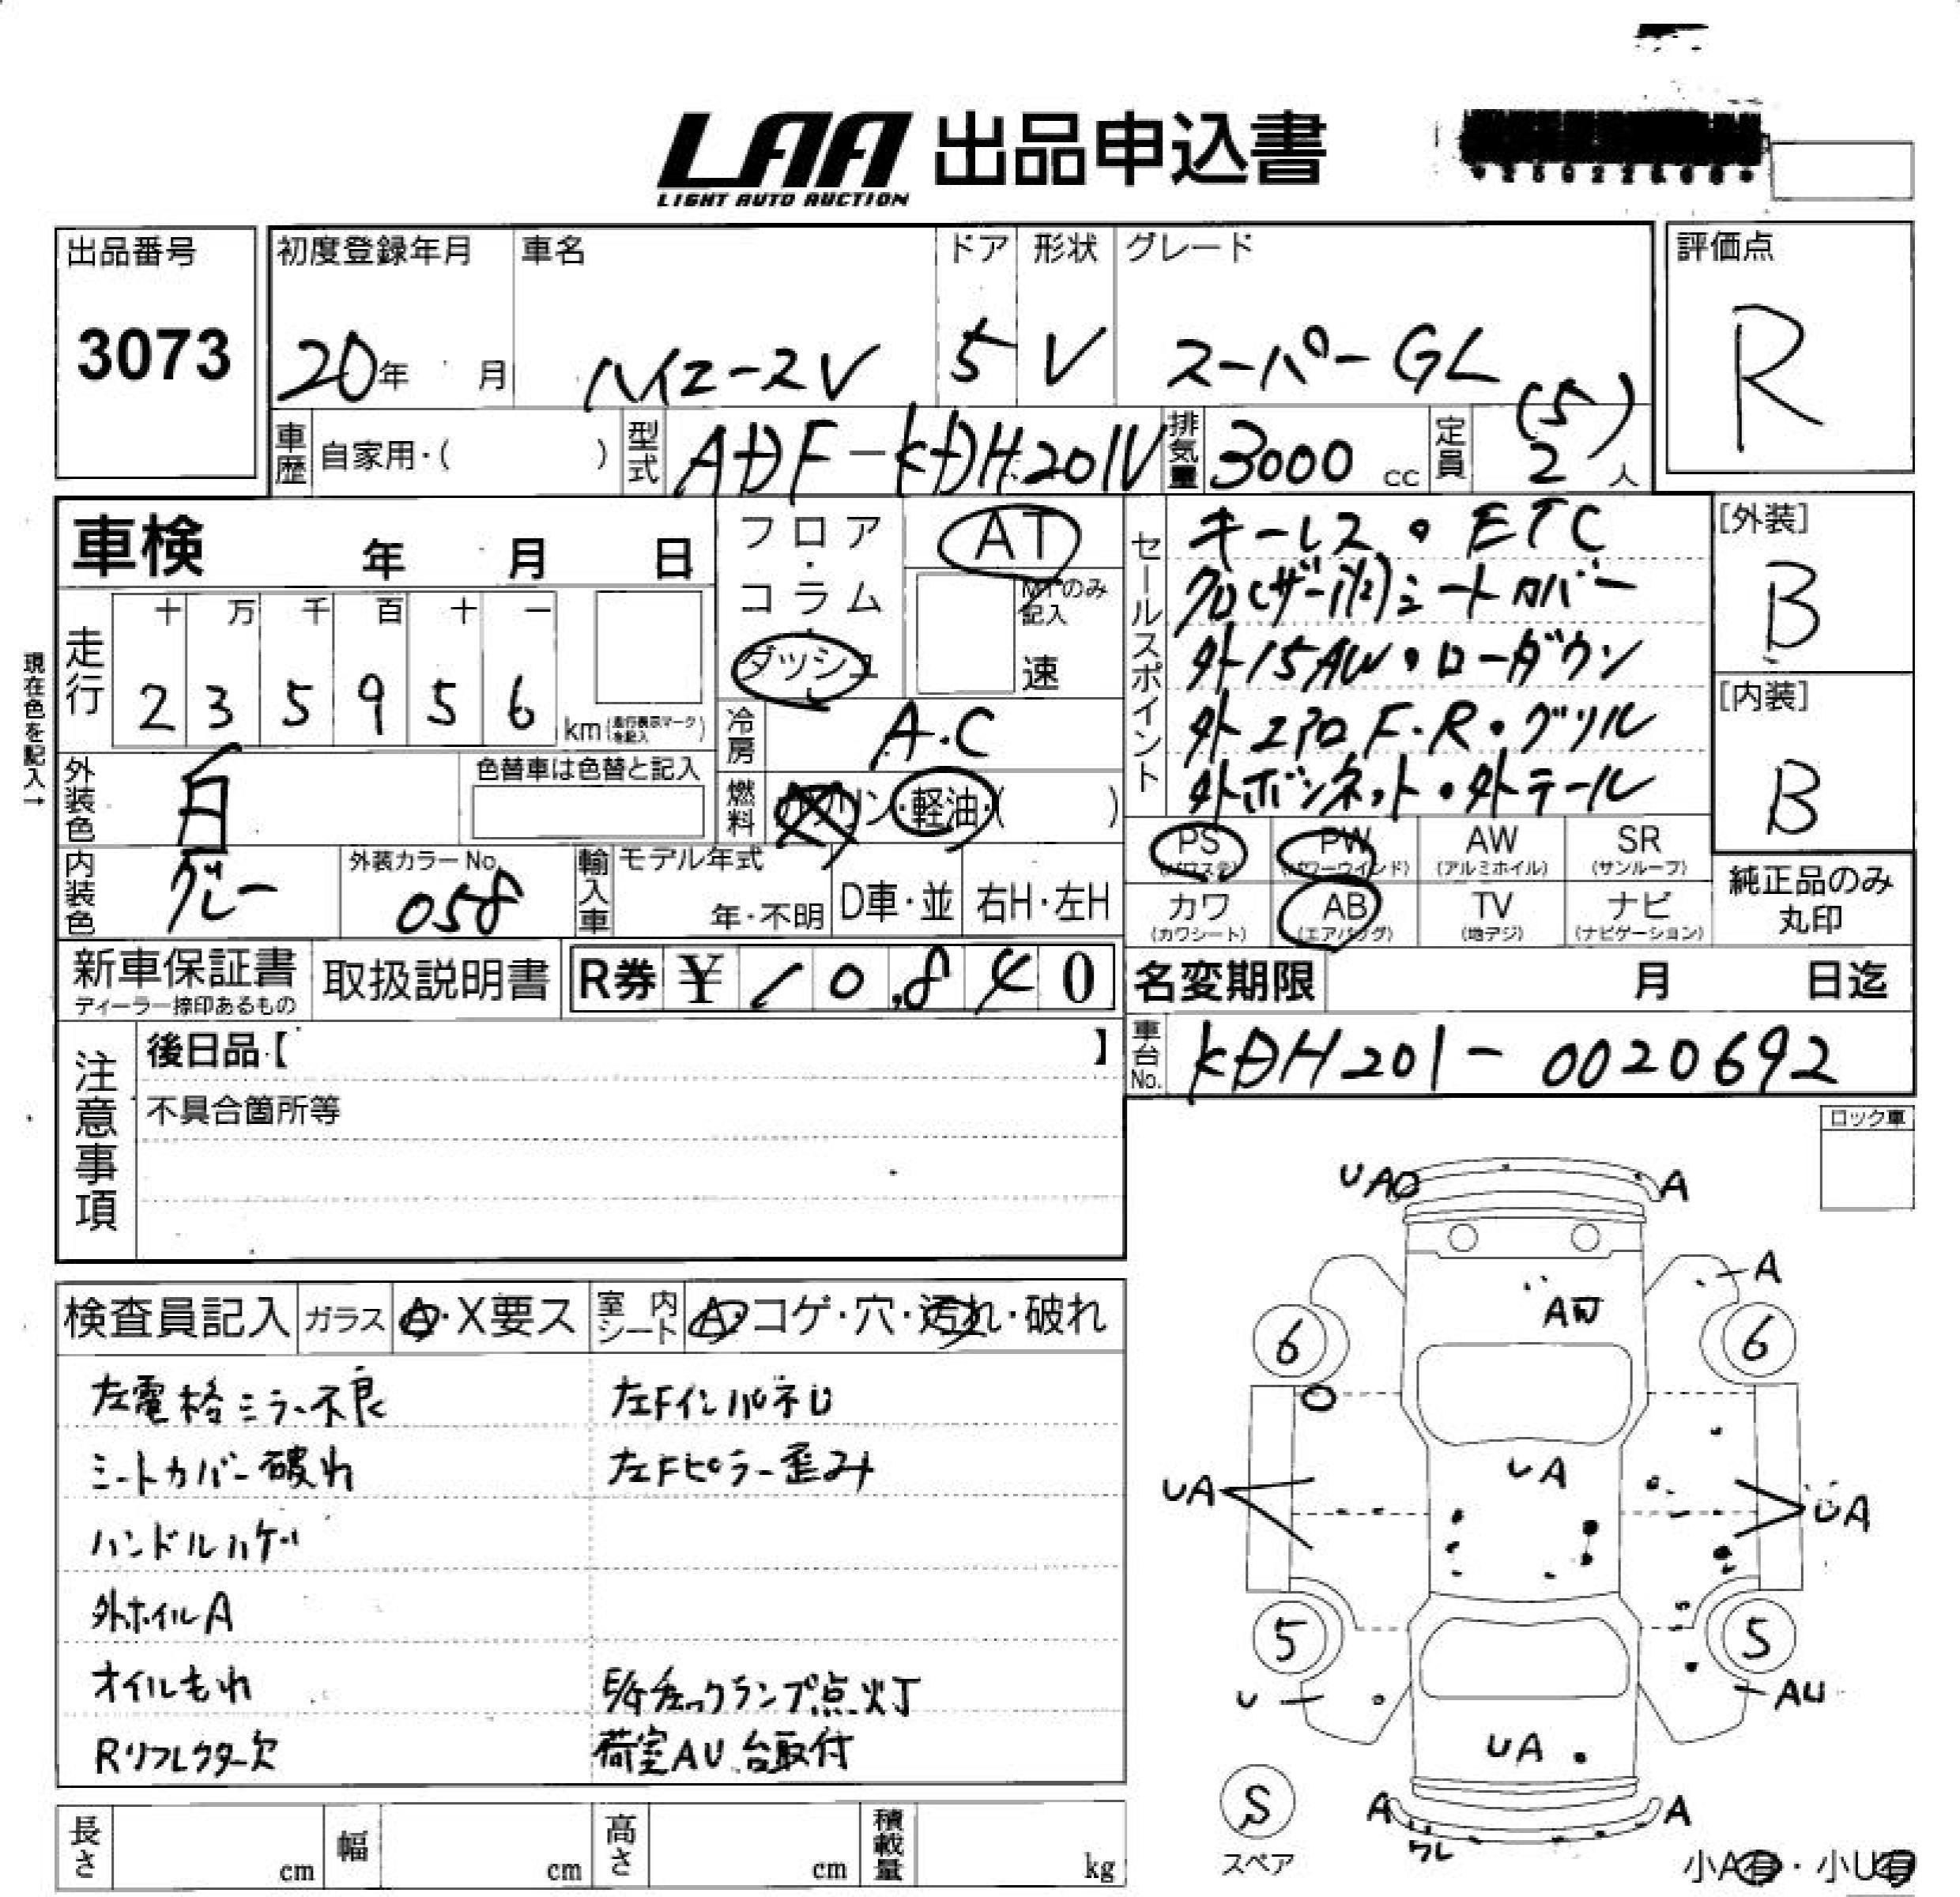 LAA 出品申込書
LIGHT AUTO AUCTION
出品番号
3073
初度登録年月
20年 月
車名
ハイエースV
ドア
5
形状
V
グレード
スーパーGL
評価点
R
車歴 自家用・( )
型式 ADF-KDH201V
排気量 3000 cc
定員 (5) 2 人
車検 年 月 日
フロア・コラム・ダッシュ
AT
MTのみ記入
速
セールスポイント
キーレス・ETC
シートカバー
外15AW・ローダウン
外エアロF・R・グリル
外ボンネット・外テール
[外装]
B
[内装]
B
現在色を記入→
走行
十 万 千 百 十 一
2 3 5 9 5 6
km(走行表示マークを記入)
冷房 A.C
燃料 ガソリン・軽油・( )
外装色 白
色替車は色替と記入
内装色 グレー
外装カラーNo. 058
輸入車 モデル年式 年・不明
D車・並 右H・左H
PS (パワステ) PW (パワーウインド) AW (アルミホイル) SR (サンルーフ)
カワ (カワシート) AB (エアバッグ) TV (地デジ) ナビ (ナビゲーション)
純正品のみ丸印
新車保証書
ディーラー捺印あるもの
取扱説明書
R券 ¥ 10,840
名変期限 月 日迄
車台No. KDH201-0020692
注意事項
後日品【 】
不具合箇所等
ロック車
検査員記入 ガラス A・X要ス 室内シート A・コゲ・穴・汚れ・破れ
左電格ミラー不良
シートカバー破れ
ハンドルハゲ
外ホイルA
オイルもれ
Rリフレクター欠
左FインパネU
左Fピラー歪み
E/Gチェックランプ点灯
荷室AU 台取付
UA
A
A
6
6
UA
UA
UA
5
5
U
AU
UA
S
スペア
A
A
ワレ
小A有・小U有
長さ cm 幅 cm 高さ cm 積載量 kg